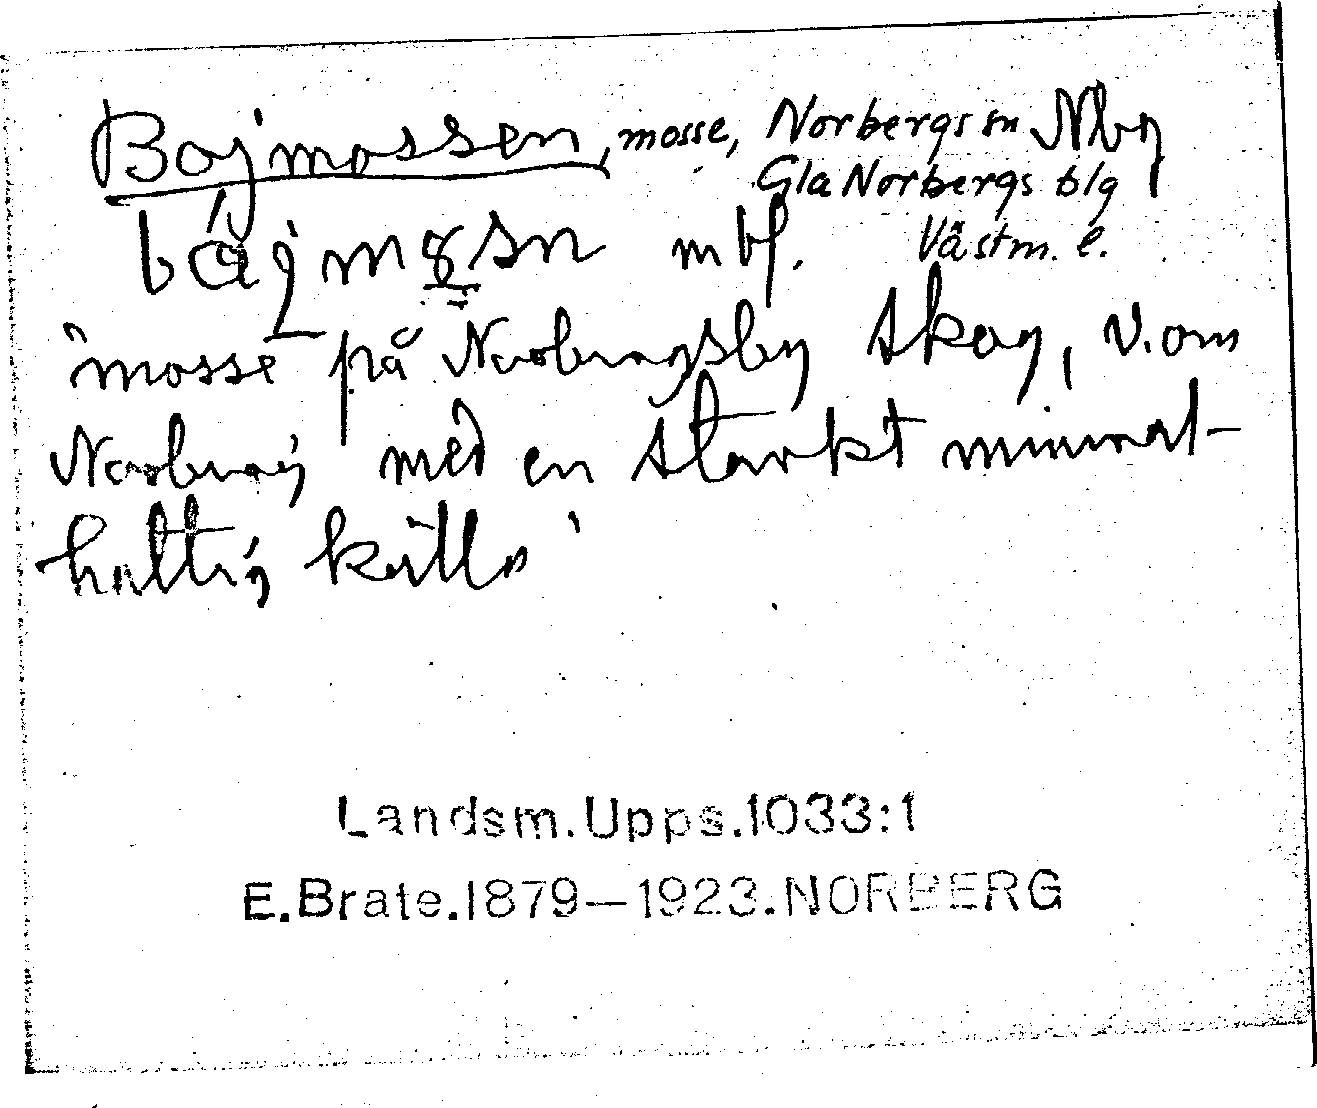 Bojmossen, mosse, Norbergs sn Nbg
Gla Norbergs blg
Västm. l.
mbf.
"mosse på Norbergsby skog, v. om
Norberg med en starkt mineral-
haltig källa"
Landsm.Upps.1033:1
E.Brate.1879—1923.NORBERG